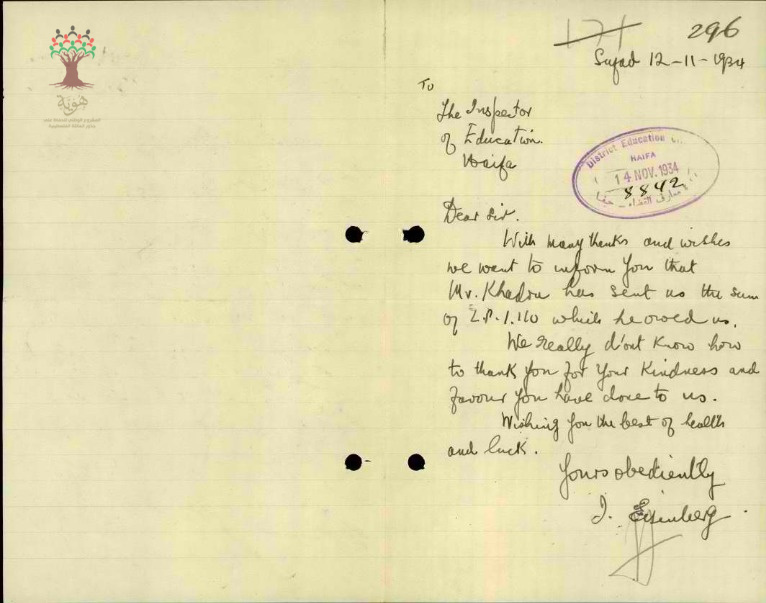 هوية
171
296
Safad 12-11-1934
To
The Inspector
of Education.
Haifa
District Education
HAIFA
14 NOV. 1934
8842
Dear Sir.
With many thanks and wishes
we want to inform you that
Mr. Khadra has sent us the sum
of L.P.1.110 which he owed us.
We really d'ont know how
to thank you for your kindness and
favour you have done to us.
Wishing you the best of health
and luck.
Yours obediently
J. Eisenberg.